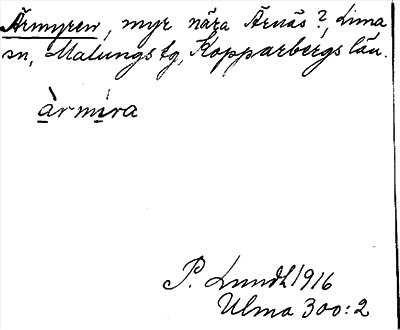 Ärmyren, myr nära Ärnäs?, Lima
sn, Malungs tg, Kopparbergs län.
àrmira
P. Lundh 1916
Ulma 300:2